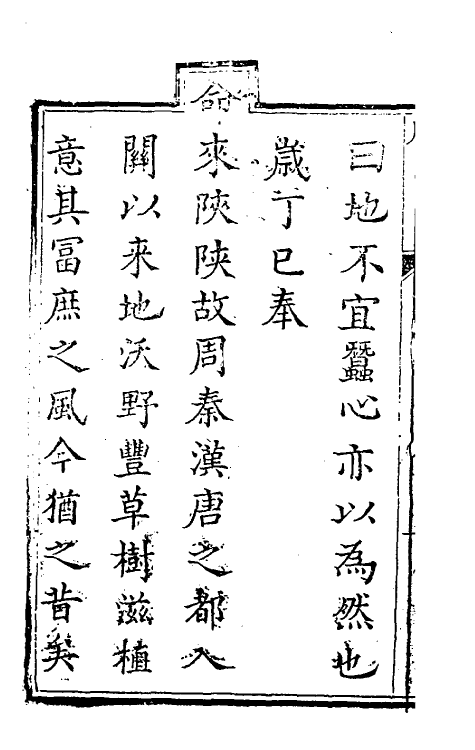 曰地不宜蠶心亦以為然也
歲丁巳奉
命來陝陝故周秦漢唐之都入
關以來地沃野豐草樹滋植
意其冨庶之風今猶之昔矣